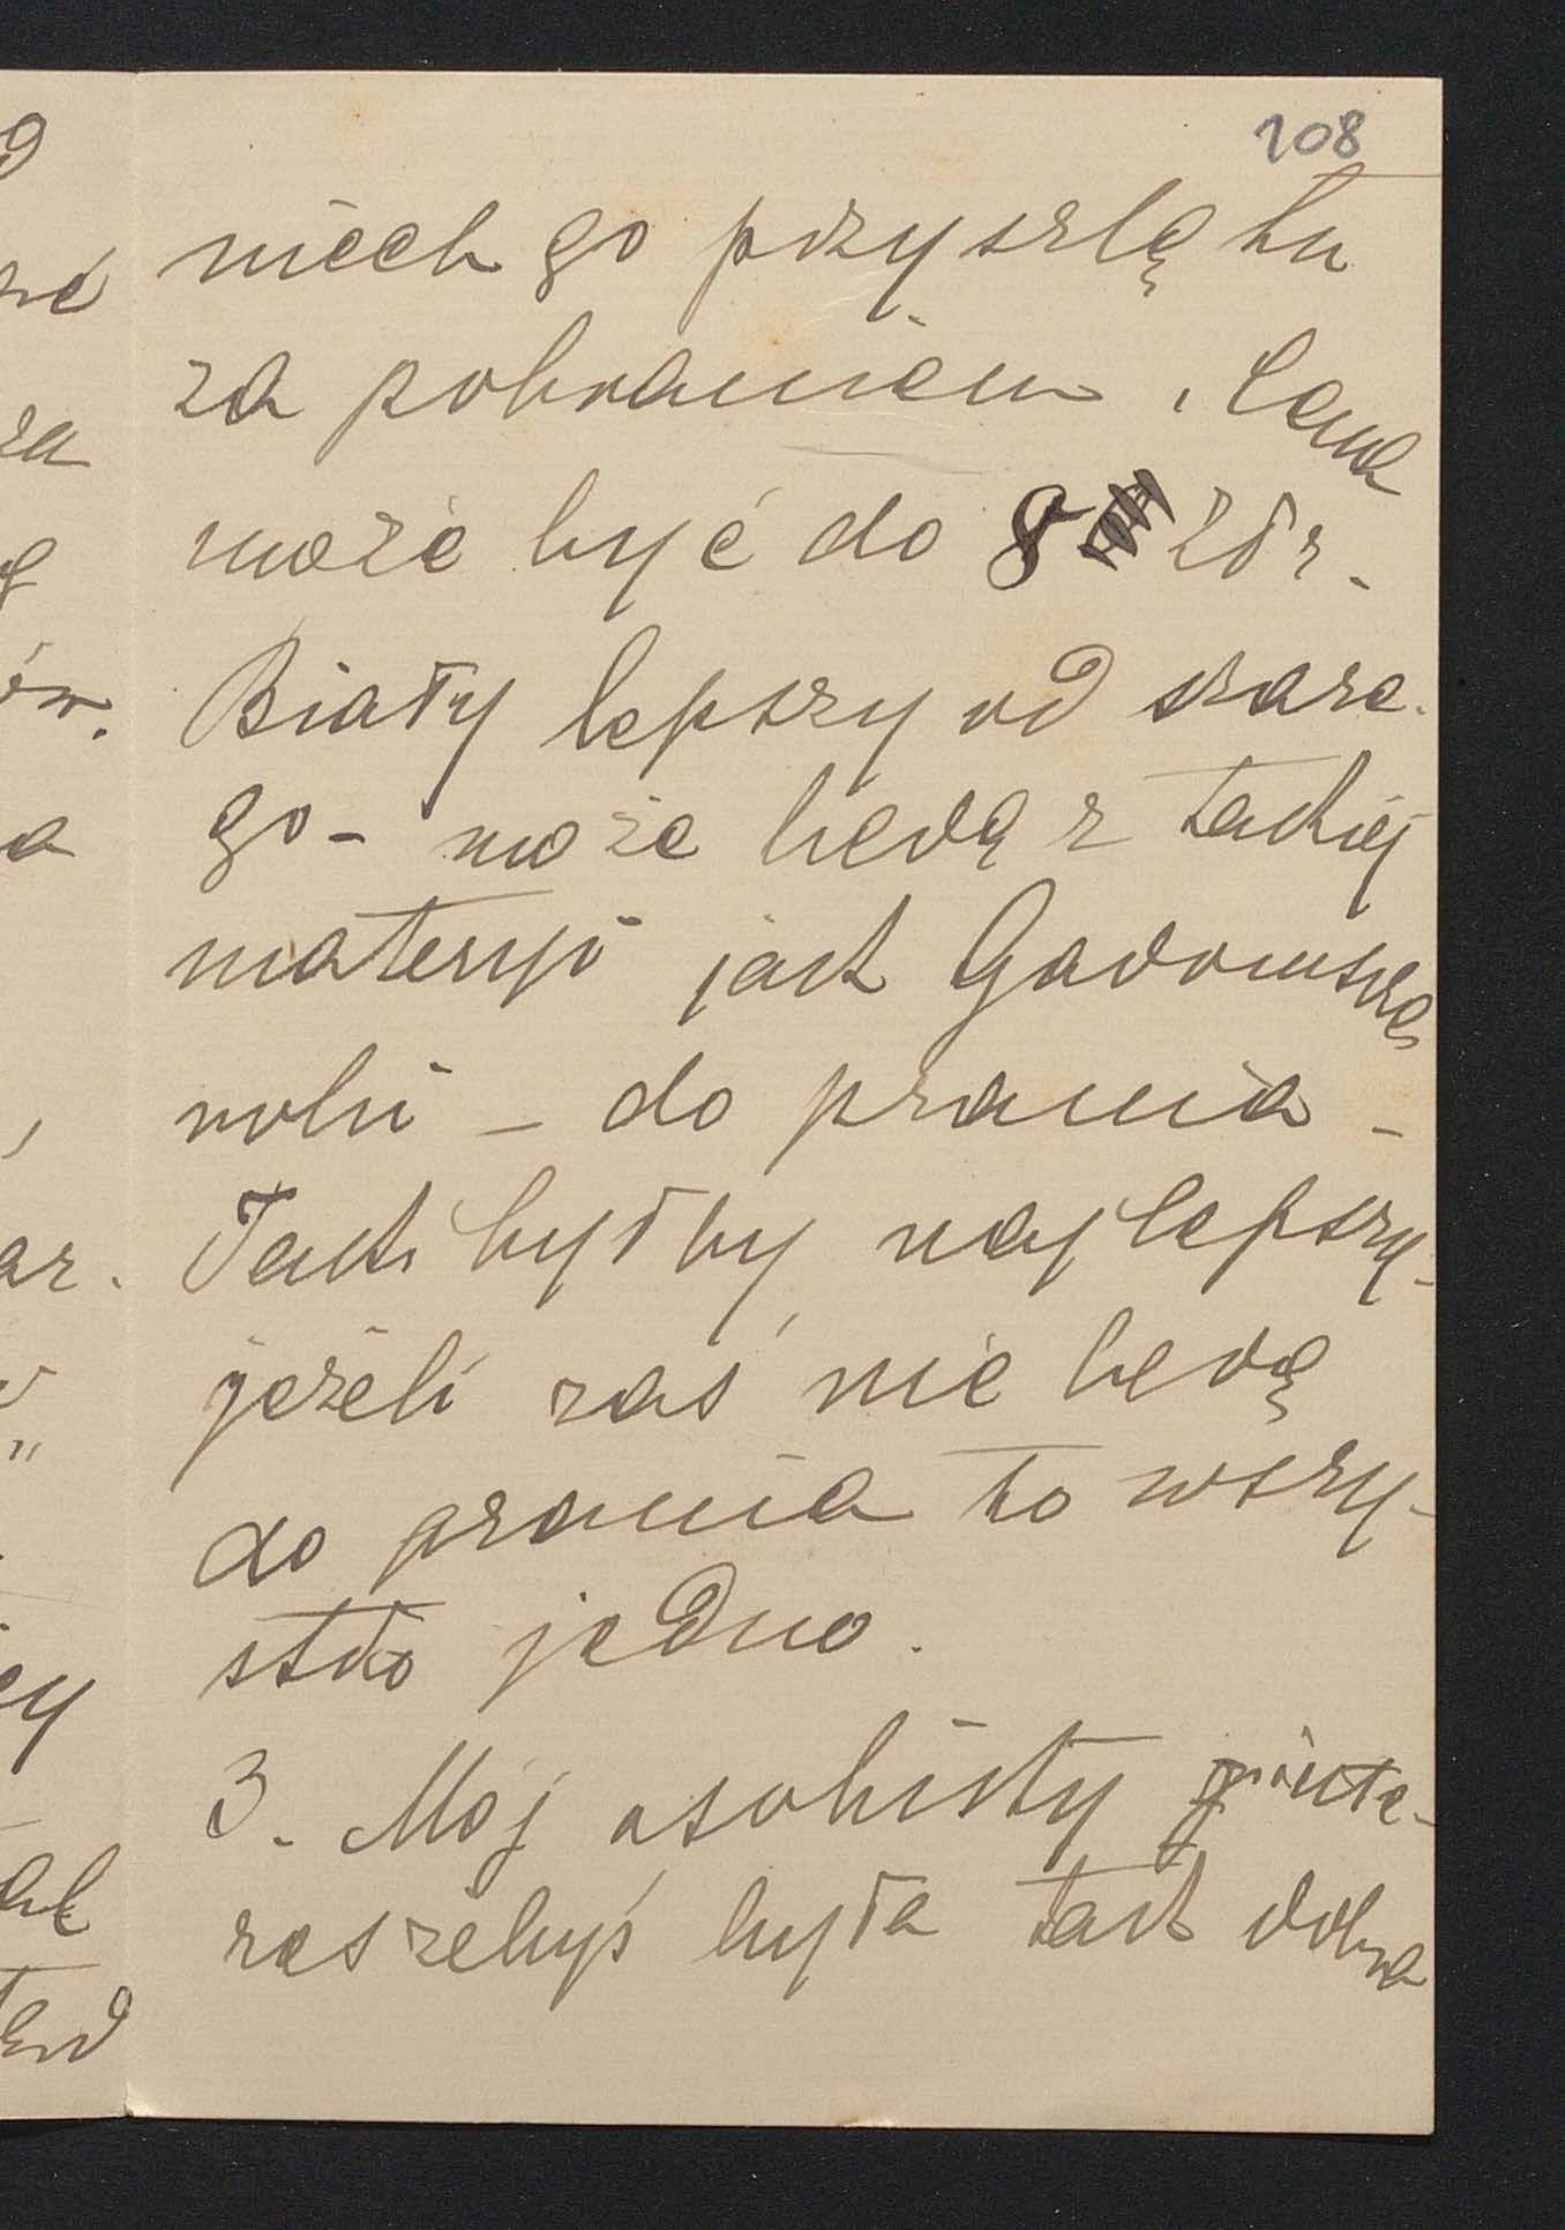 108
niech go przyszlą tu
za pobraniem. Cena
może być do 8 złr.
Biały lepszy od szare-
go - może będą z takiej
materyi jak Gadomska
robi - do prania -
Taki byłby najlepszy -
jeżeli zaś nie będą
do prania to wszy-
stko jedno.
3. Mój osobisty inte-
res żebyś była tak dobra